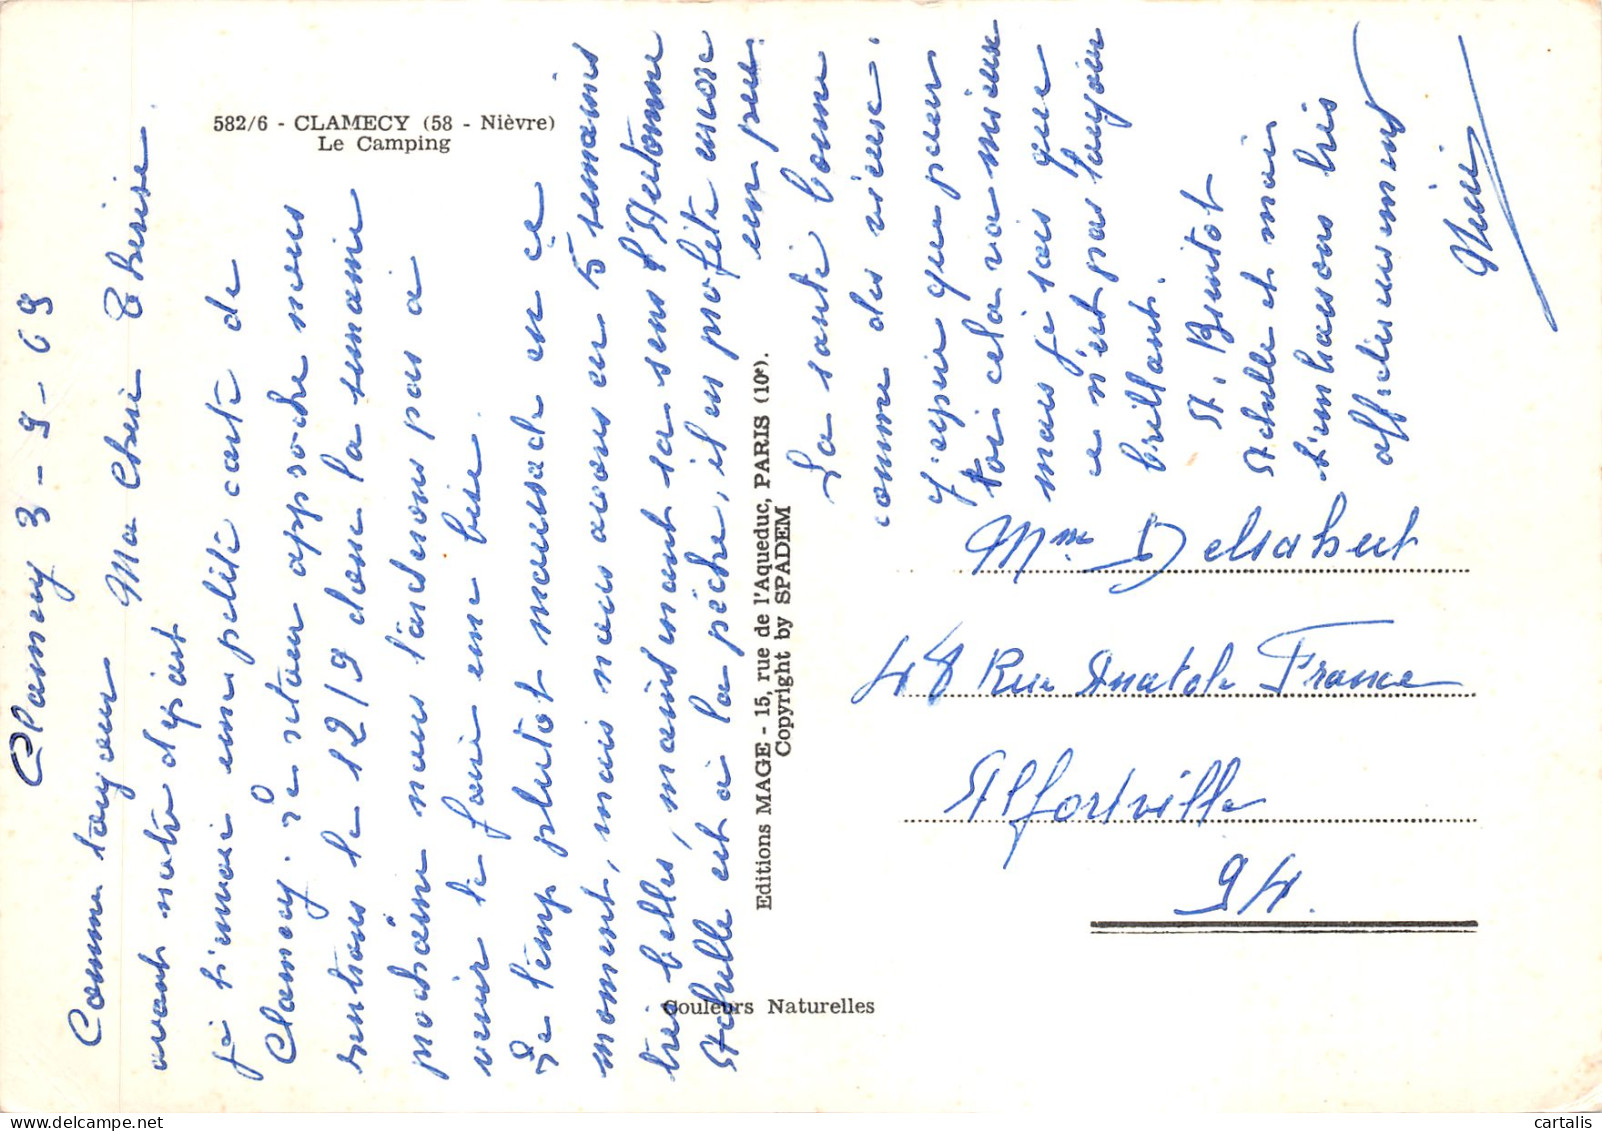 582/6 - CLAMECY (58 - Nièvre)
Le Camping
Clamecy 3-9-69
Ma Chère Thérèse
Comme toujours
avant notre départ
je t'envoie une petite carte de
Clamecy, le retour approche nous
rentrons le 12/9 donc la semaine
prochaine nous tarderons pas à
venir te faire une bise.
Le temp plutot maussade en ce
moment, mais nous avons eu 5 semaines
très belles, maintenant sa sens l'Automne
Achille est à la pêche, il en profite encore
un peu.
La santé bonne
comme des vieux.
J'espère que pour
toi cela va mieux
mais je sais que
ce n'est pas toujours
brillant.
A. Bientot
Achille et moi
t'embrassons très
affectueusement
Editions MAGE - 15, rue de l'Aqueduc, PARIS (10e).
Copyright by SPADEM
Mme Delsahut
48 Rue Anatole France
Alfortville
94.
Couleurs Naturelles
cartalis